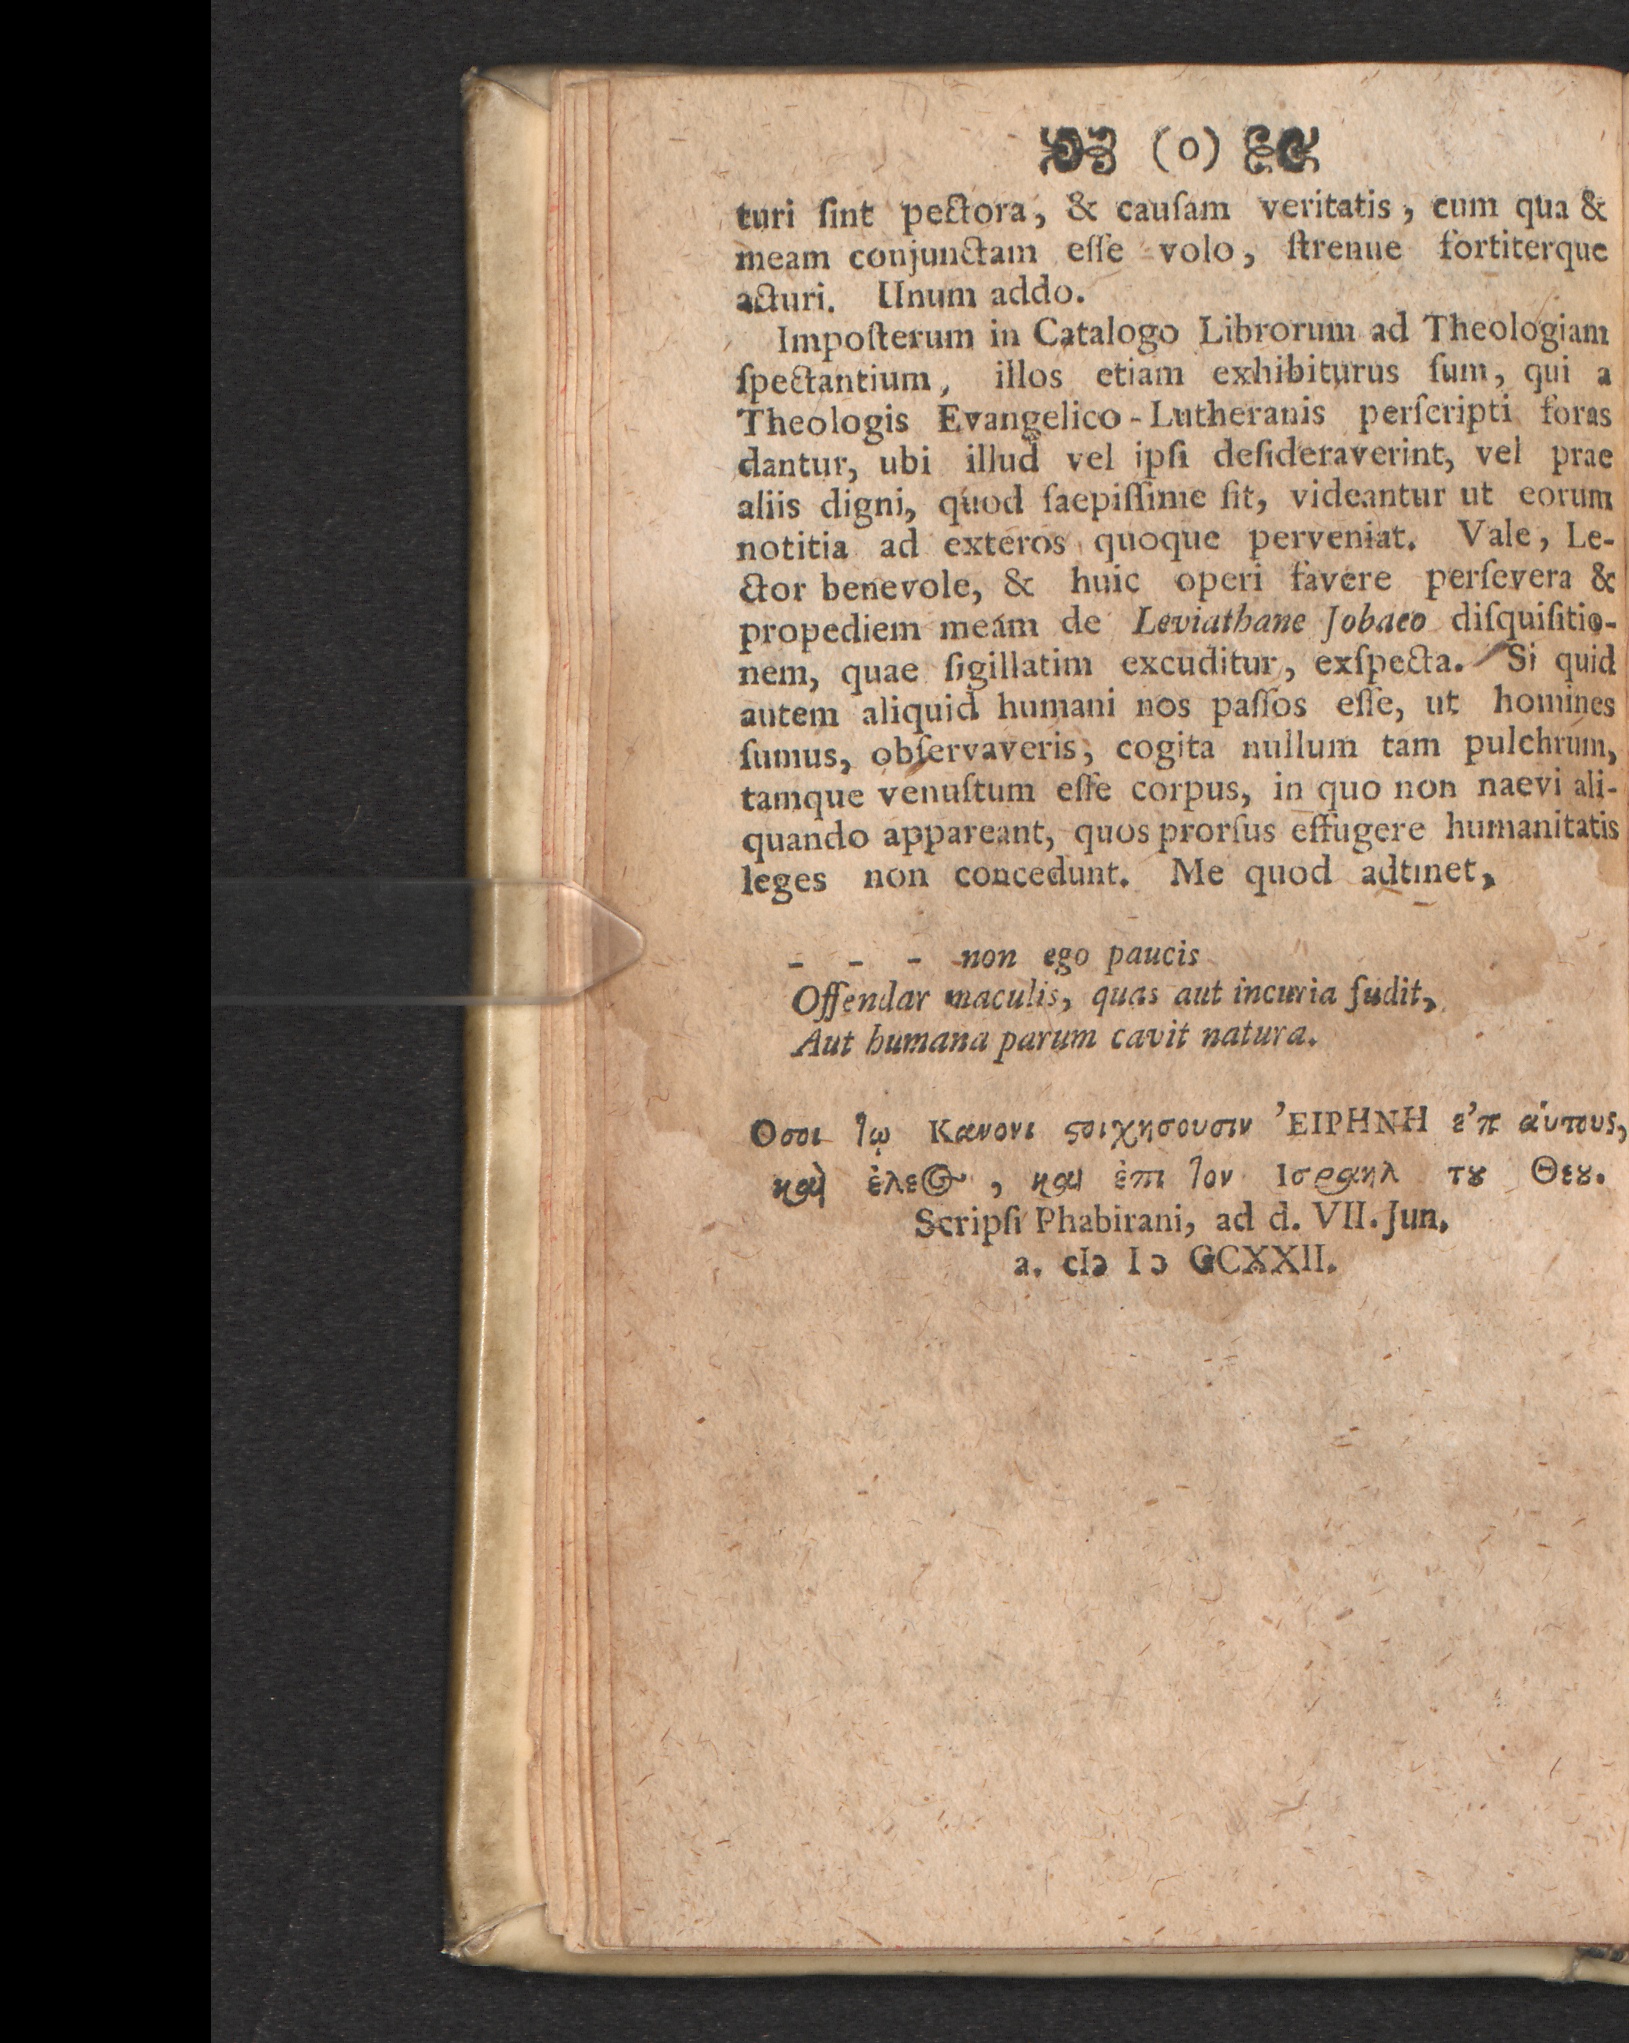 (o)
turi ſint pectora, & cauſam veritatis, cum qua &
meam conjunctam eſſe volo, ſtrenue fortiterque
acturi. Unum addo.
Impoſterum in Catalogo Librorum ad Theologiam
ſpectantium, illos etiam exhibiturus ſum, qui a
Theologis Evangelico-Lutheranis perſcripti foras
dantur, ubi illud vel ipſi deſideraverint, vel prae
aliis digni, quod ſaepiſſime fit, videantur ut eorum
notitia ad exteros quoque perveniat. Vale, Le-
ctor benevole, & huic operi favere perſevera &
propediem meam de Leviathane Jobaeo diſquiſitio-
nem, quae ſigillatim excuditur, exſpecta. Si quid
autem aliquid humani nos paſſos eſſe, ut homines
ſumus, obſervaveris, cogita nullum tam pulchrum,
tamque venuſtum eſſe corpus, in quo non naevi ali-
quando appareant, quos prorſus effugere humanitatis
leges non concedunt. Me quod adtinet,
- - - non ego paucis
Offendar maculis, quas aut incuria fudit,
Aut humana parum cavit natura.
Οσοι τῳ Κανονι ϛοιχησουσιν ’ΕΙΡΗΝΗ ε’π αὐτους,
καὶ ἐλεος, και ἐπι τον Ισραηλ τȣ Θεȣ.
Scripſi Phabirani, ad d. VII. Jun.
a. cIɔ Iɔ GCXXII.